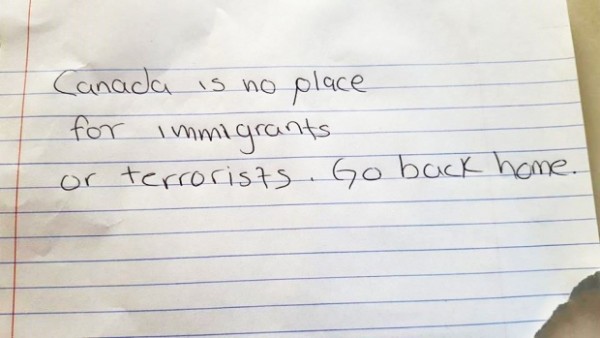 Canada is no place
for immigrants
or terrorists. Go back home.